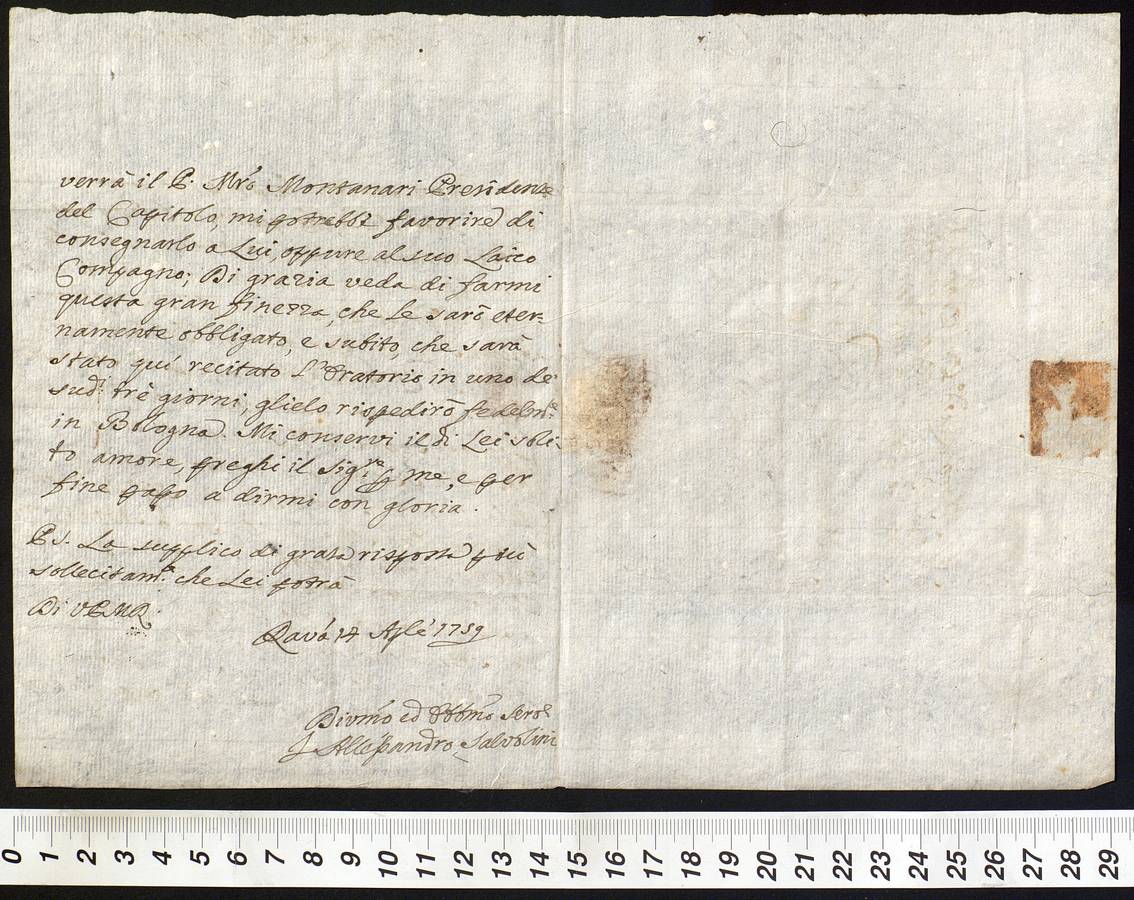 verrà il P. Mro Montanari Presidente
del Capitolo, mi potrebbe favorire di
consegnarlo a Lui, oppure al suo Laico
Compagno; Di grazia veda di farmi
questa gran finezza, che le sarò eter-
namente obbligato, e subito, che sarà
stato quì recitato l'Oratorio in uno de'
sudi. trè giorni, glielo rispedirò fedelmte.
in Bologna. Mi conservi il di Lei soli-
to amore, preghi il Sigre. p me, e per
fine passo a dirmi con gloria.
P.S. La supplico di grata risposta p più
sollecitamte. che Lei potrà
Di V P M R.
Rava 14 Aple 1759
Divmo ed Obbmo Sere
F Allessandro Salvolini
0 1 2 3 4 5 6 7 8 9 10 11 12 13 14 15 16 17 18 19 20 21 22 23 24 25 26 27 28 29